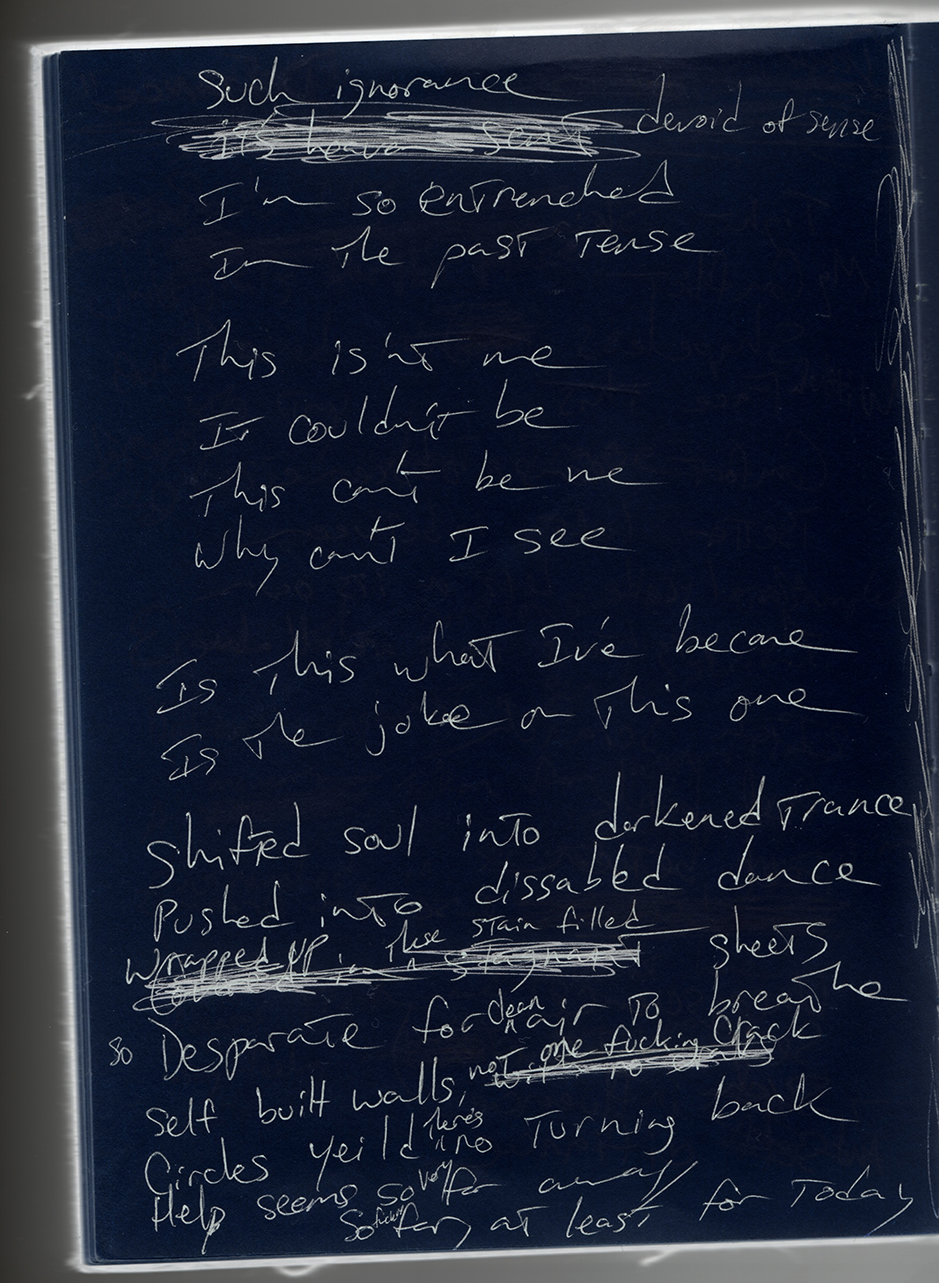 Such ignorance
it's heaven sent devoid of sense
I'm so entrenched
In the past tense
This is'nt me
It couldn't be
This can't be me
Why can't I see
Is this what I've become
Is the joke on this one
Shifted soul into darkened trance
Pushed into dissabled dance
Wrapped up in these stain filled stagnant sheets
So Desparate for clean air to breathe
Self built walls, not one fucking crack
Circles yeild there's no turning back
Help seems so very far away
So fucking far, at least for today